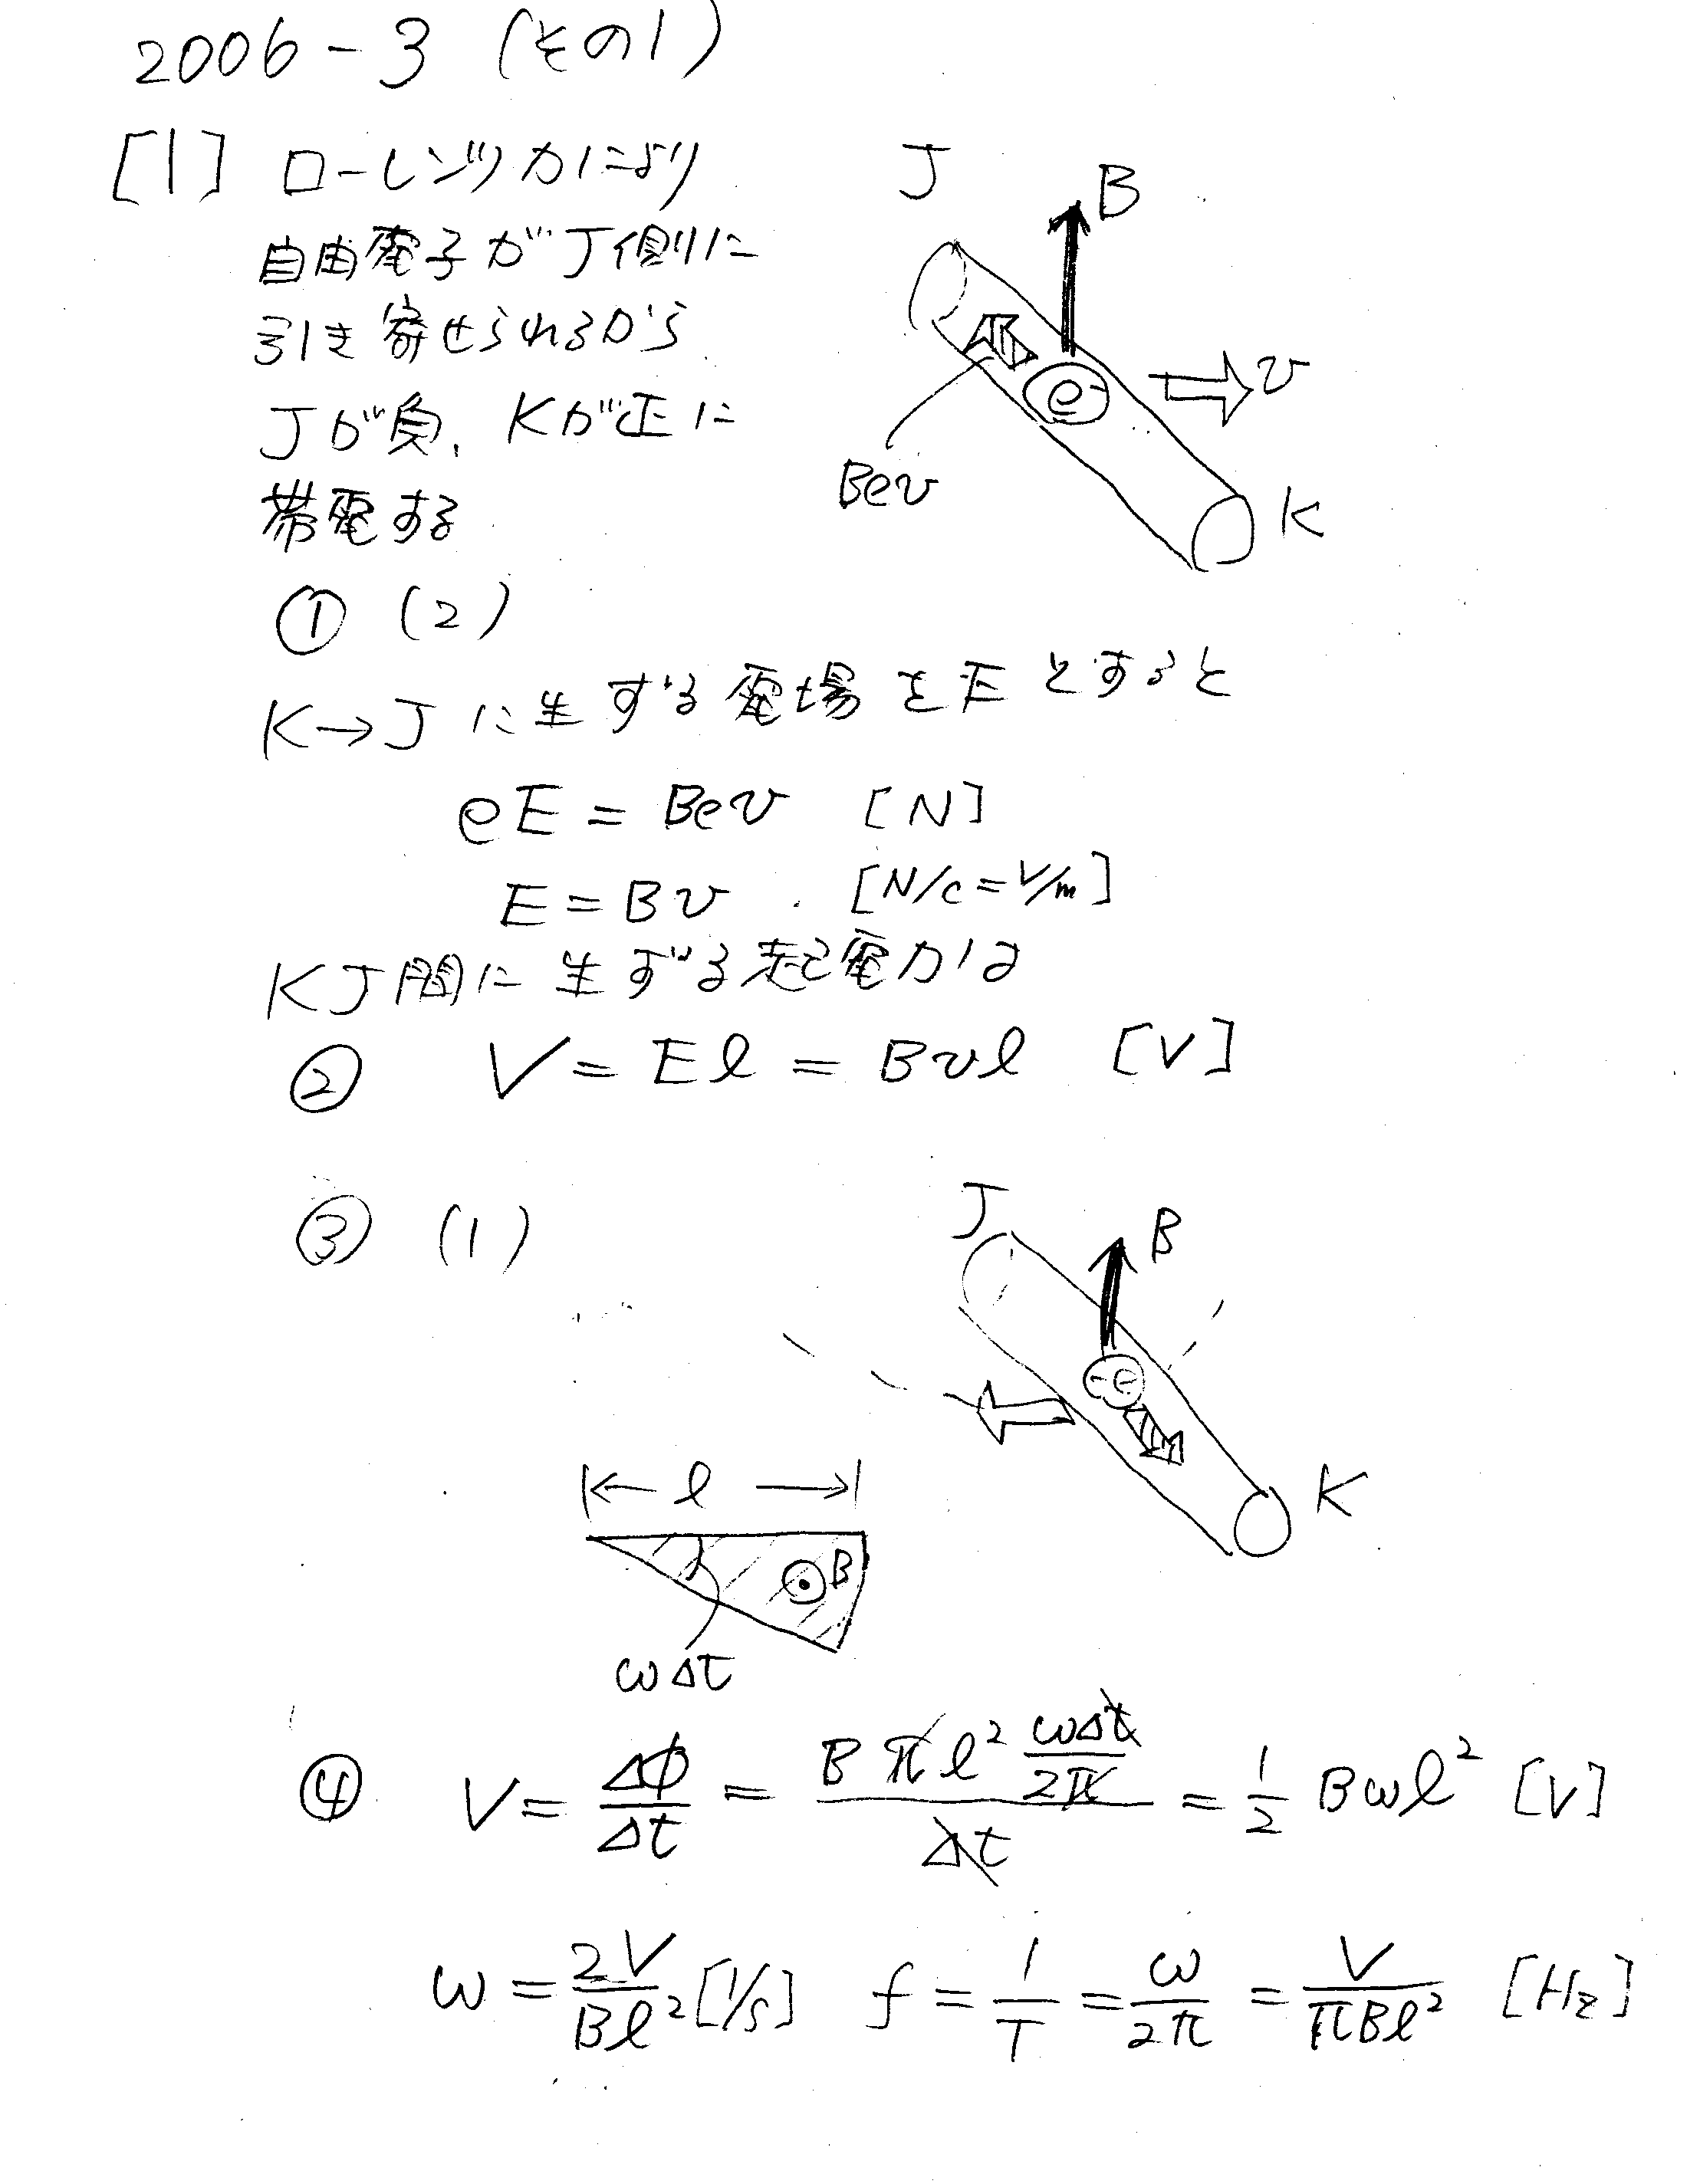 2006-3 (その1)
[1] ローレンツ力により
自由電子がJ側に
引き寄せられるから
Jが負、Kが正に
帯電する
J
B
e
v
Bev
K
① (2)
K→Jに生ずる電場をEとすると
eE = Bev [N]
E = Bv. [N/C = V/m]
KJ間に生ずる起電力は
② V = El = Bvl [V]
③ (1)
J
B
-e
K
l
B
ωΔt
④ V = Δφ/Δt = Bπl² ωΔt/2π / Δt = 1/2 Bωl² [V]
ω = 2V/Bl² [1/s] f = 1/T = ω/2π = V/πBl² [Hz]